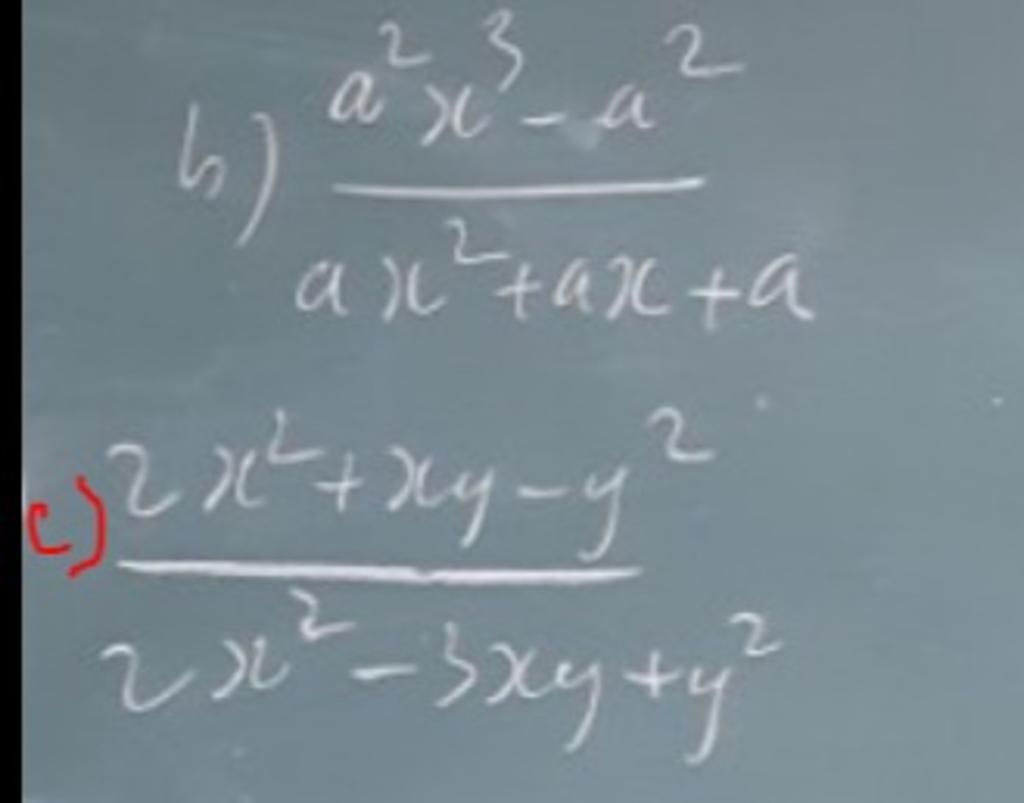 b) a²x³ - a²
ax² + ax + a
c) 2x² + xy - y²
2x² - 3xy + y²